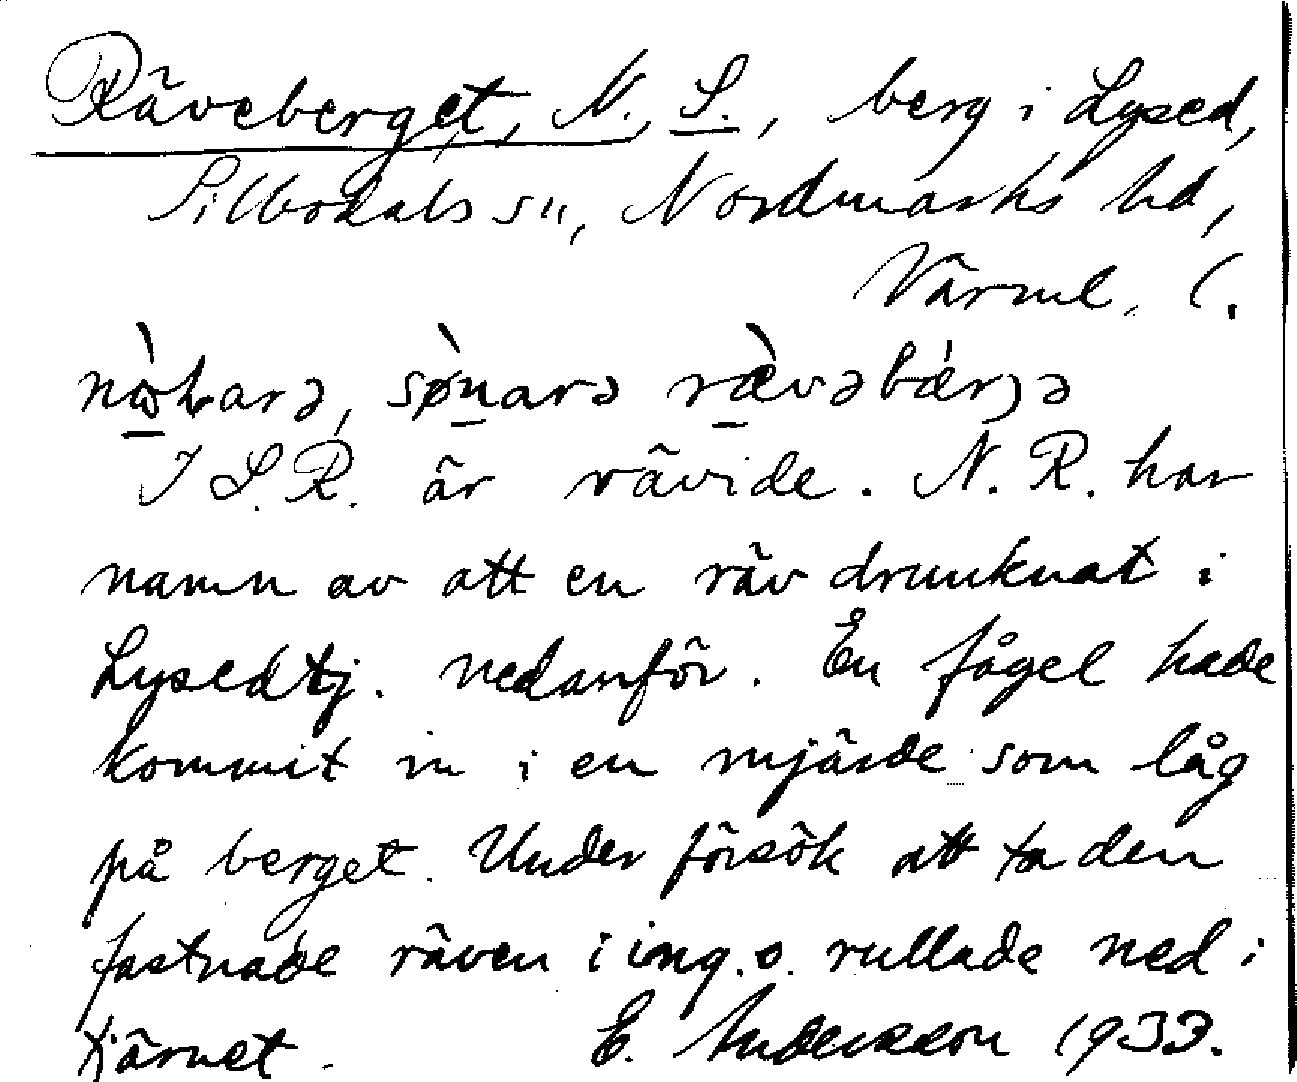 Räveberget, N., S., berg i Lysed,
Silbodals sn, Nordmarks hd,
Värml. l.
nòṛarə, sø̀narə rævəbærjə
I S. R. är rävide. N. R. har
namn av att en räv drunknat i
Lysedtj. nedanför. En fågel hade
kommit in i en mjärde som låg
på berget. Under försök att ta den
fastnade räven i ing. o. rullade ned i
tjärnet. E. Andersson 1933.